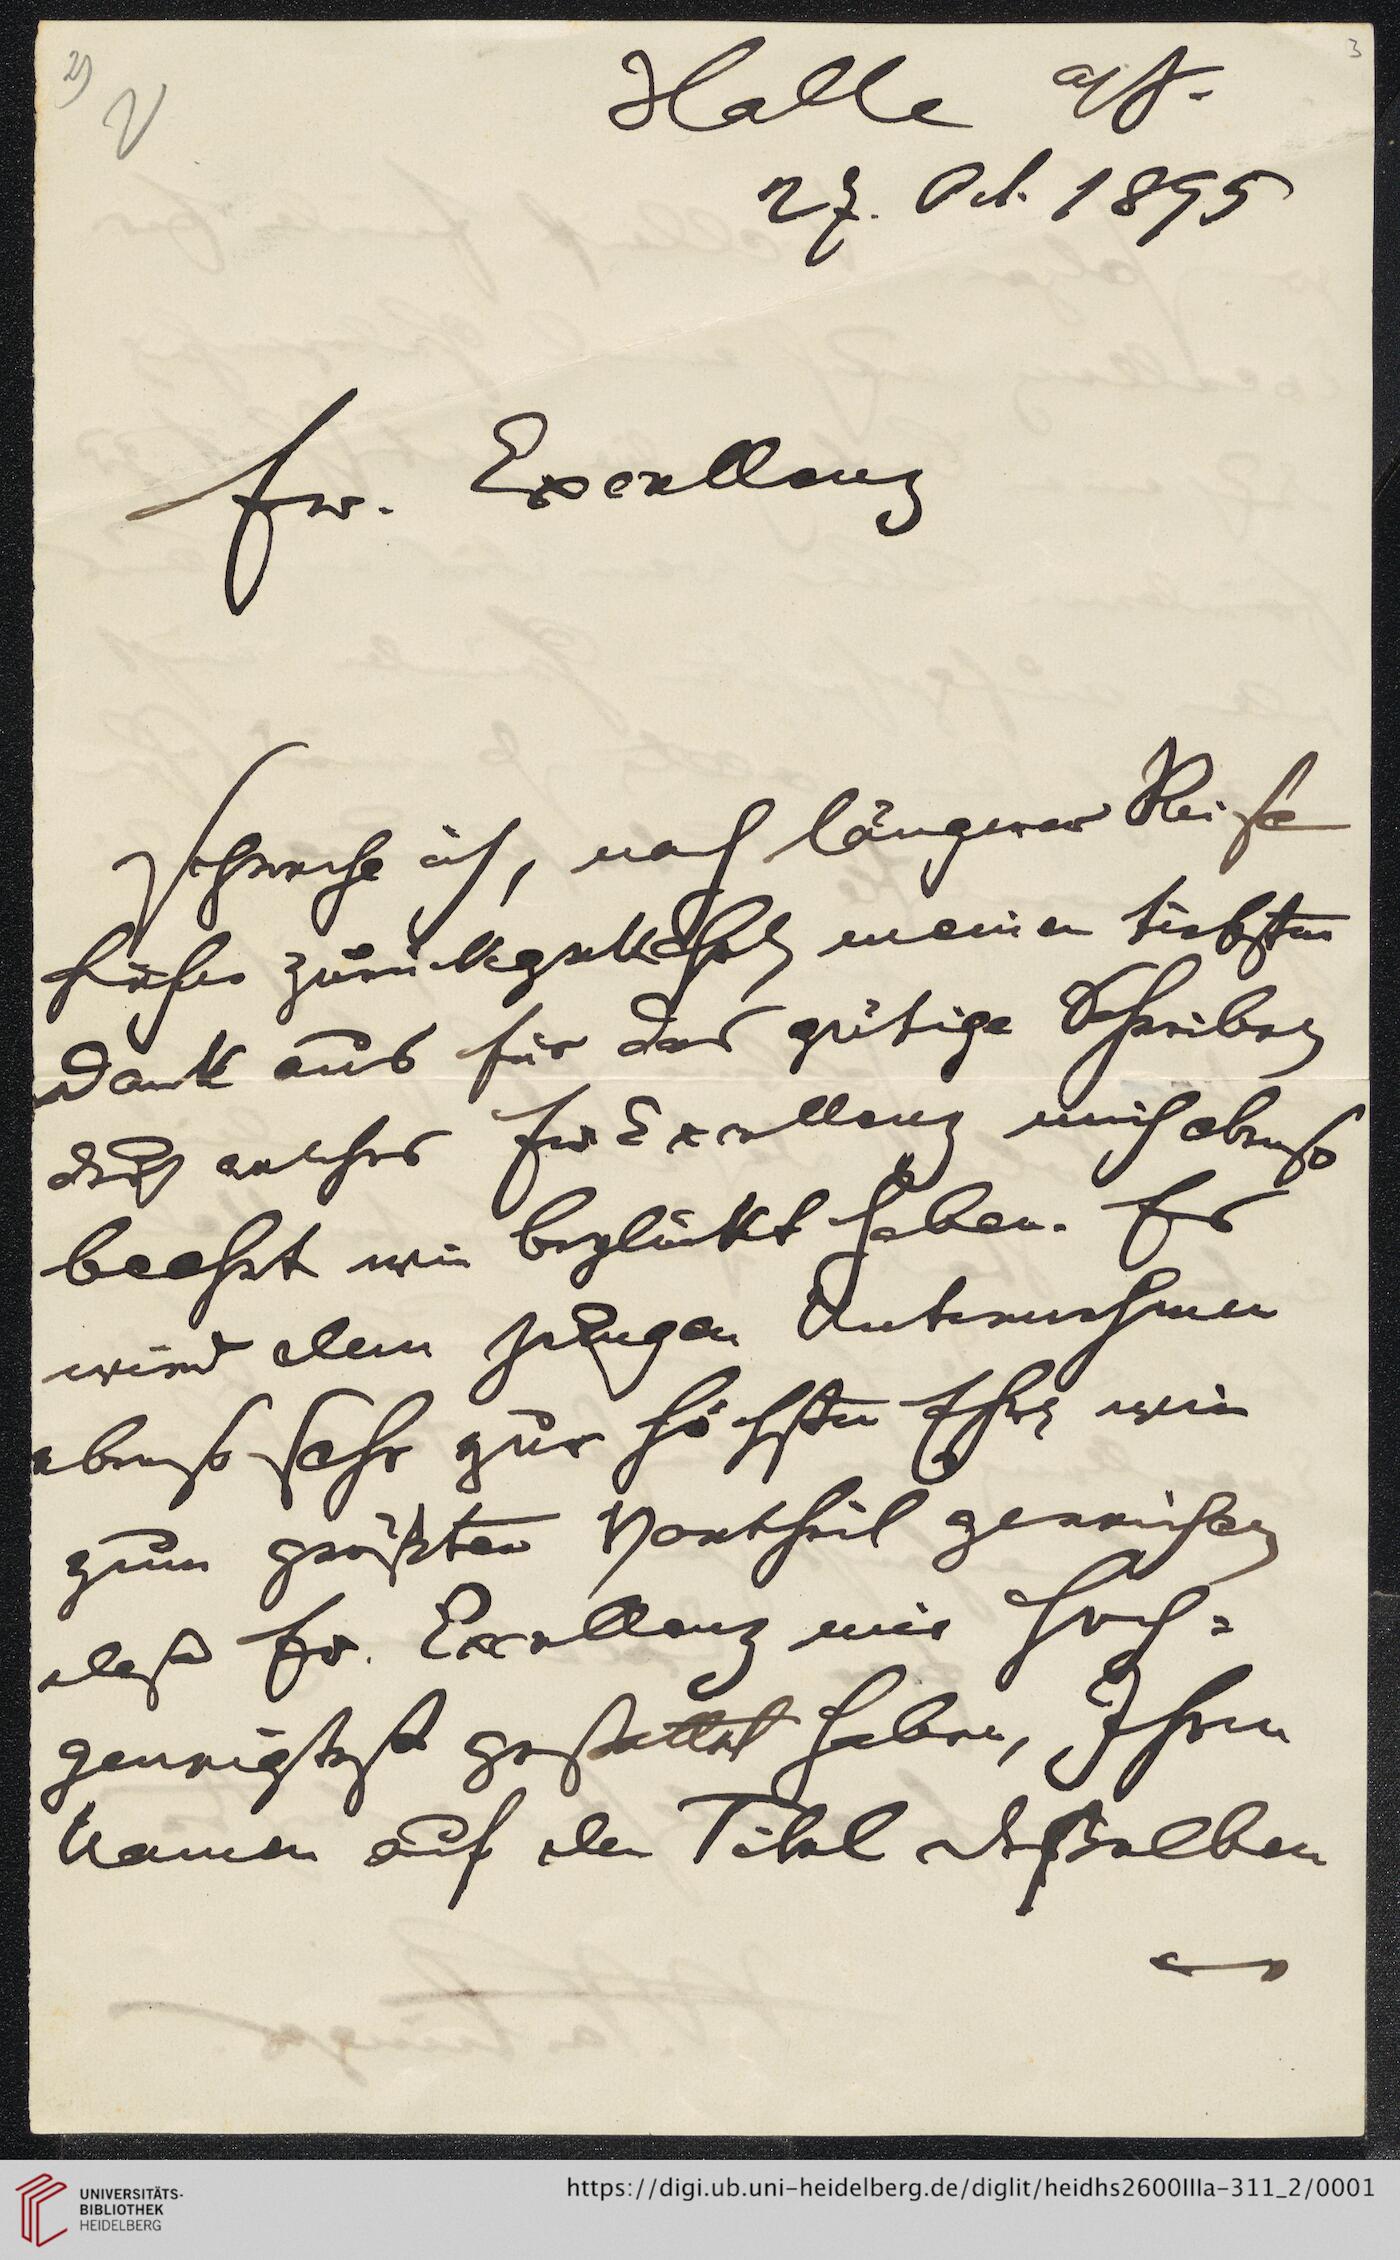 2)
V
3
Halle a/S.
27. Oct. 1895
Ew. Excellenz
spreche ich, nach längerer Reise
hieher zurückgekehrt meinen tiefsten
Dank aus für das gütige Schreiben
durch welches Ew Excellenz mich ebenso
beehrt wie beglückt haben. Es
wird dem jungen Unternehmen
ebenso sehr zur höchsten Ehre wie
zum größten Vortheil gereichen
daß Ew. Excellenz mir hoch=
geneigtest gestattet haben, Ihren
Namen auf den Titel desselben
UNIVERSITÄTS-
BIBLIOTHEK
HEIDELBERG
https://digi.ub.uni-heidelberg.de/diglit/heidhs2600IIIa-311_2/0001